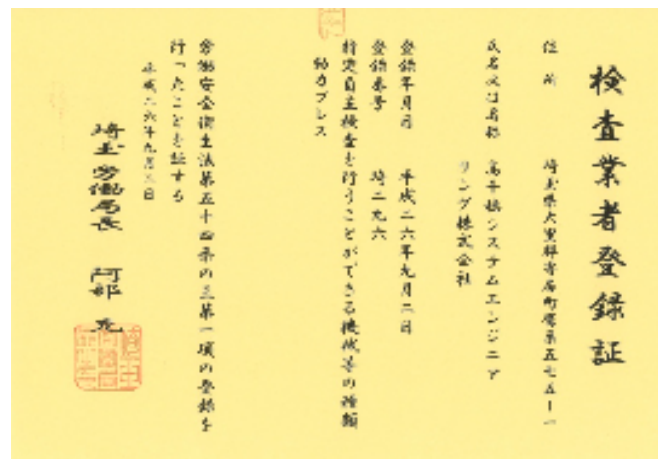 検査業者登録証
住所 埼玉県大里郡寄居町富田五七五ー一
氏名又は名称 高千穂システムエンジニア
リング株式会社
登録年月日 平成二六年九月二日
登録番号 埼二九六
特定自主検査を行うことができる機械等の種類
動力プレス
労働安全衛生法第五十四条の三第一項の登録を
行ったことを証する
平成二六年九月二日
埼玉労働局長 阿部 充